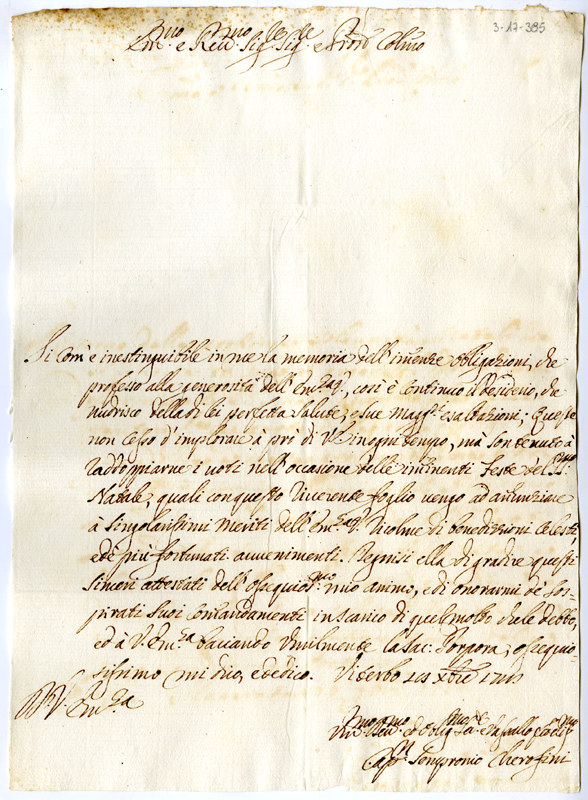 3-17-385
Em.mo e Rev.mo Sig.re Sig.re e Pron Colmo
Si com'è inestinguibile in me la memoria dell'imenze obligazioni, che
professo alla generosità dell'Em.za V., così è continuo il desiderio, che
nudrisco della di lei perfetta salute, e sue magg.ri esaltazioni; Queste
non cesso d'implorare à prò di V.E. in ogni tempo, mà son tenuto à
raddoppiarne i voti nell'occasione delle imminenti feste del S.mo
Natale, quali con questo riverente foglio vengo ad annunziare
à singolarissimi meriti dell'Em.za V. ricolme di benedizzioni celesti,
ed e più fortunati avvenimenti. Degnisi ella di gradire questi
sinceri attestati dell'ossequio.mo mio animo, e di onorarmi de sos-
pirati suoi comandamenti in scarico di quel molto che le debbo,
ed à V. Em.za baciando umilmente la sac: Porpora, ossequio-
sissimo mi dico, e dedico. Viterbo
D. V. Em.za
Um.mo Dev.mo ed oblig.mo
Sempronio